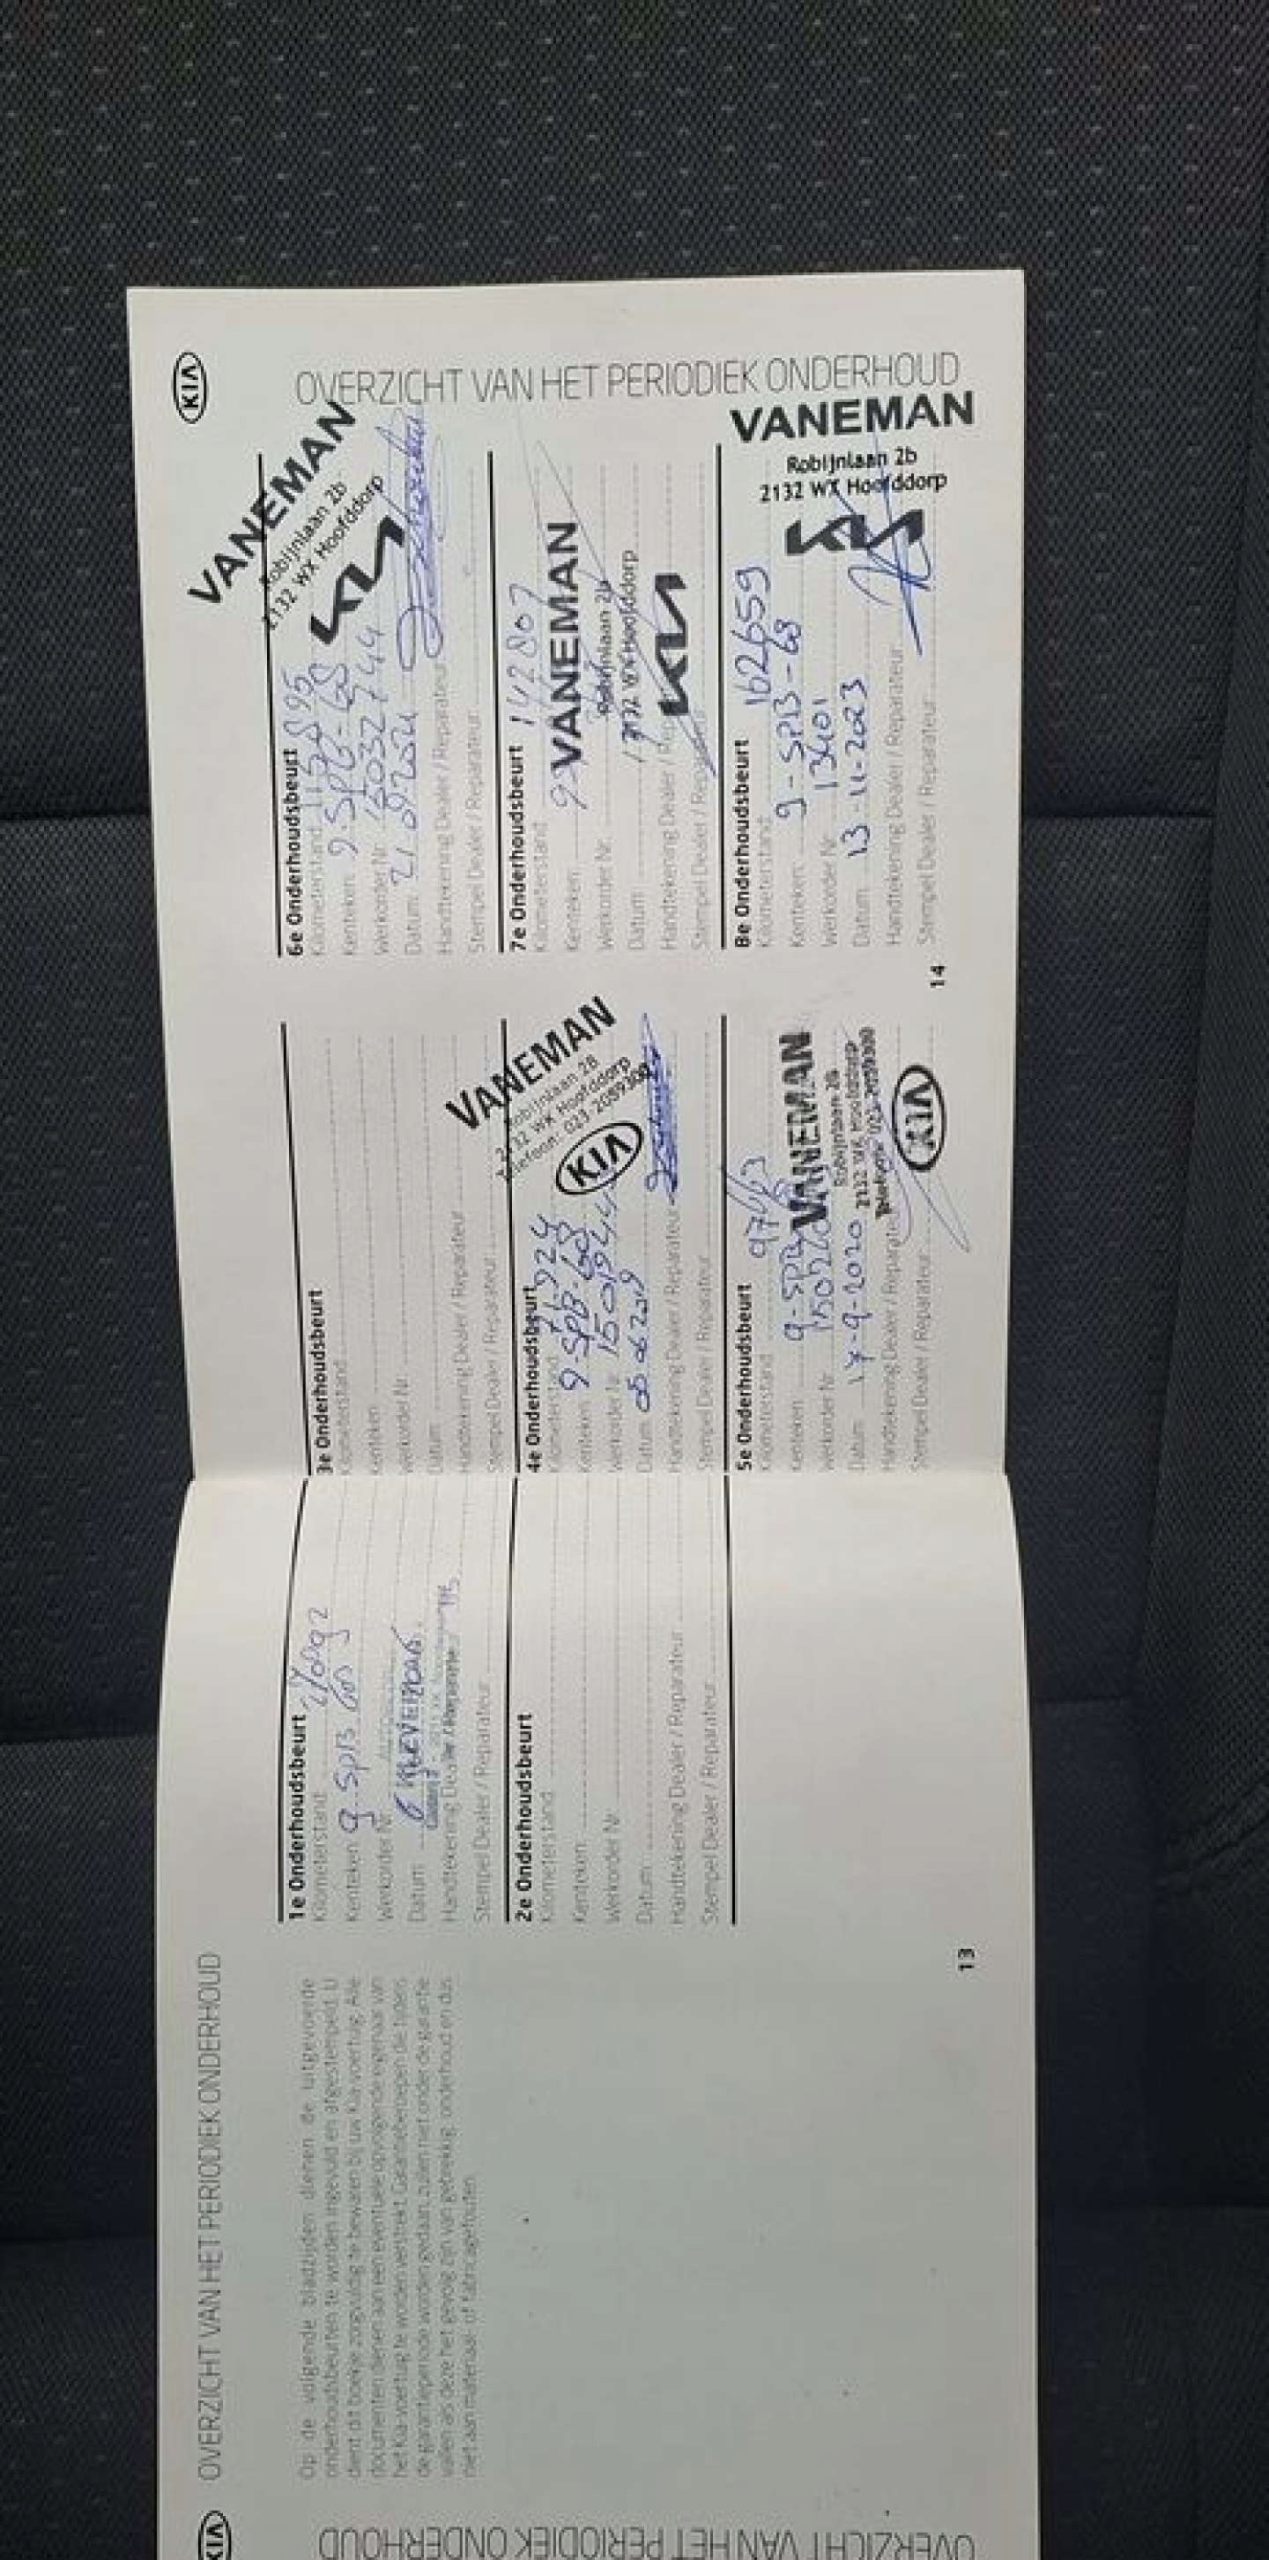 KIA
OVERZICHT VAN HET PERIODIEK ONDERHOUD
Op de volgende bladzijden dienen de uitgevoerde
onderhoudsbeurten te worden ingevuld en afgestempeld. U
dient dit boekje zorgvuldig te bewaren bij uw Kia-voertuig. Alle
documenten dienen aan een eventuele opvolgende eigenaar van
het Kia-voertuig te worden verstrekt. Garantieberoepen die tijdens
de garantieperiode worden gedaan, zullen niet onder de garantie
vallen als deze het gevolg zijn van gebrekkig onderhoud en dus
niet aan materiaal- of fabricagefouten.
1e Onderhoudsbeurt
Kilometerstand
Kenteken 9-SPB
Werkorder Nr.
Datum
Handtekening Dealer / Reparateur
Stempel Dealer / Reparateur
2e Onderhoudsbeurt
Kilometerstand
Kenteken
Werkorder Nr.
Datum
Handtekening Dealer / Reparateur
Stempel Dealer / Reparateur
13
3e Onderhoudsbeurt
Kilometerstand
Kenteken
Werkorder Nr.
Datum
Handtekening Dealer / Reparateur
Stempel Dealer / Reparateur
4e Onderhoudsbeurt
Kilometerstand
Kenteken 9-SPB-68
Werkorder Nr. 1501944
Datum
Handtekening Dealer / Reparateur
Stempel Dealer / Reparateur
VANEMAN
Robijnlaan 2B
2132 WX Hoofddorp
Telefoon: 023 2059300
KIA
5e Onderhoudsbeurt
Kilometerstand
Kenteken 9-SPB
Werkorder Nr.
Datum 17-9-2020
Handtekening Dealer / Reparateur
Stempel Dealer / Reparateur
VANEMAN
Robijnlaan 2B
2132 WX Hoofddorp
Telefoon: 023 2059300
KIA
KIA
OVERZICHT VAN HET PERIODIEK ONDERHOUD
6e Onderhoudsbeurt
Kilometerstand 115895
Kenteken 9-SPB-68
Werkorder Nr.
Datum
Handtekening Dealer / Reparateur
Stempel Dealer / Reparateur
VANEMAN
Robijnlaan 2b
2132 WX Hoofddorp
KIA
7e Onderhoudsbeurt
Kilometerstand 142807
Kenteken
Werkorder Nr.
Datum
Handtekening Dealer
Stempel Dealer
VANEMAN
Robijnlaan 2b
2132 WX Hoofddorp
KIA
8e Onderhoudsbeurt
Kilometerstand 162659
Kenteken 9-SPB-68
Werkorder Nr. 13401
Datum 13-11-2023
Handtekening Dealer / Reparateur
Stempel Dealer / Reparateur
VANEMAN
Robijnlaan 2b
2132 WX Hoofddorp
KIA
14
KIA
OVERZICHT VAN HET PERIODIEK ONDERHOUD